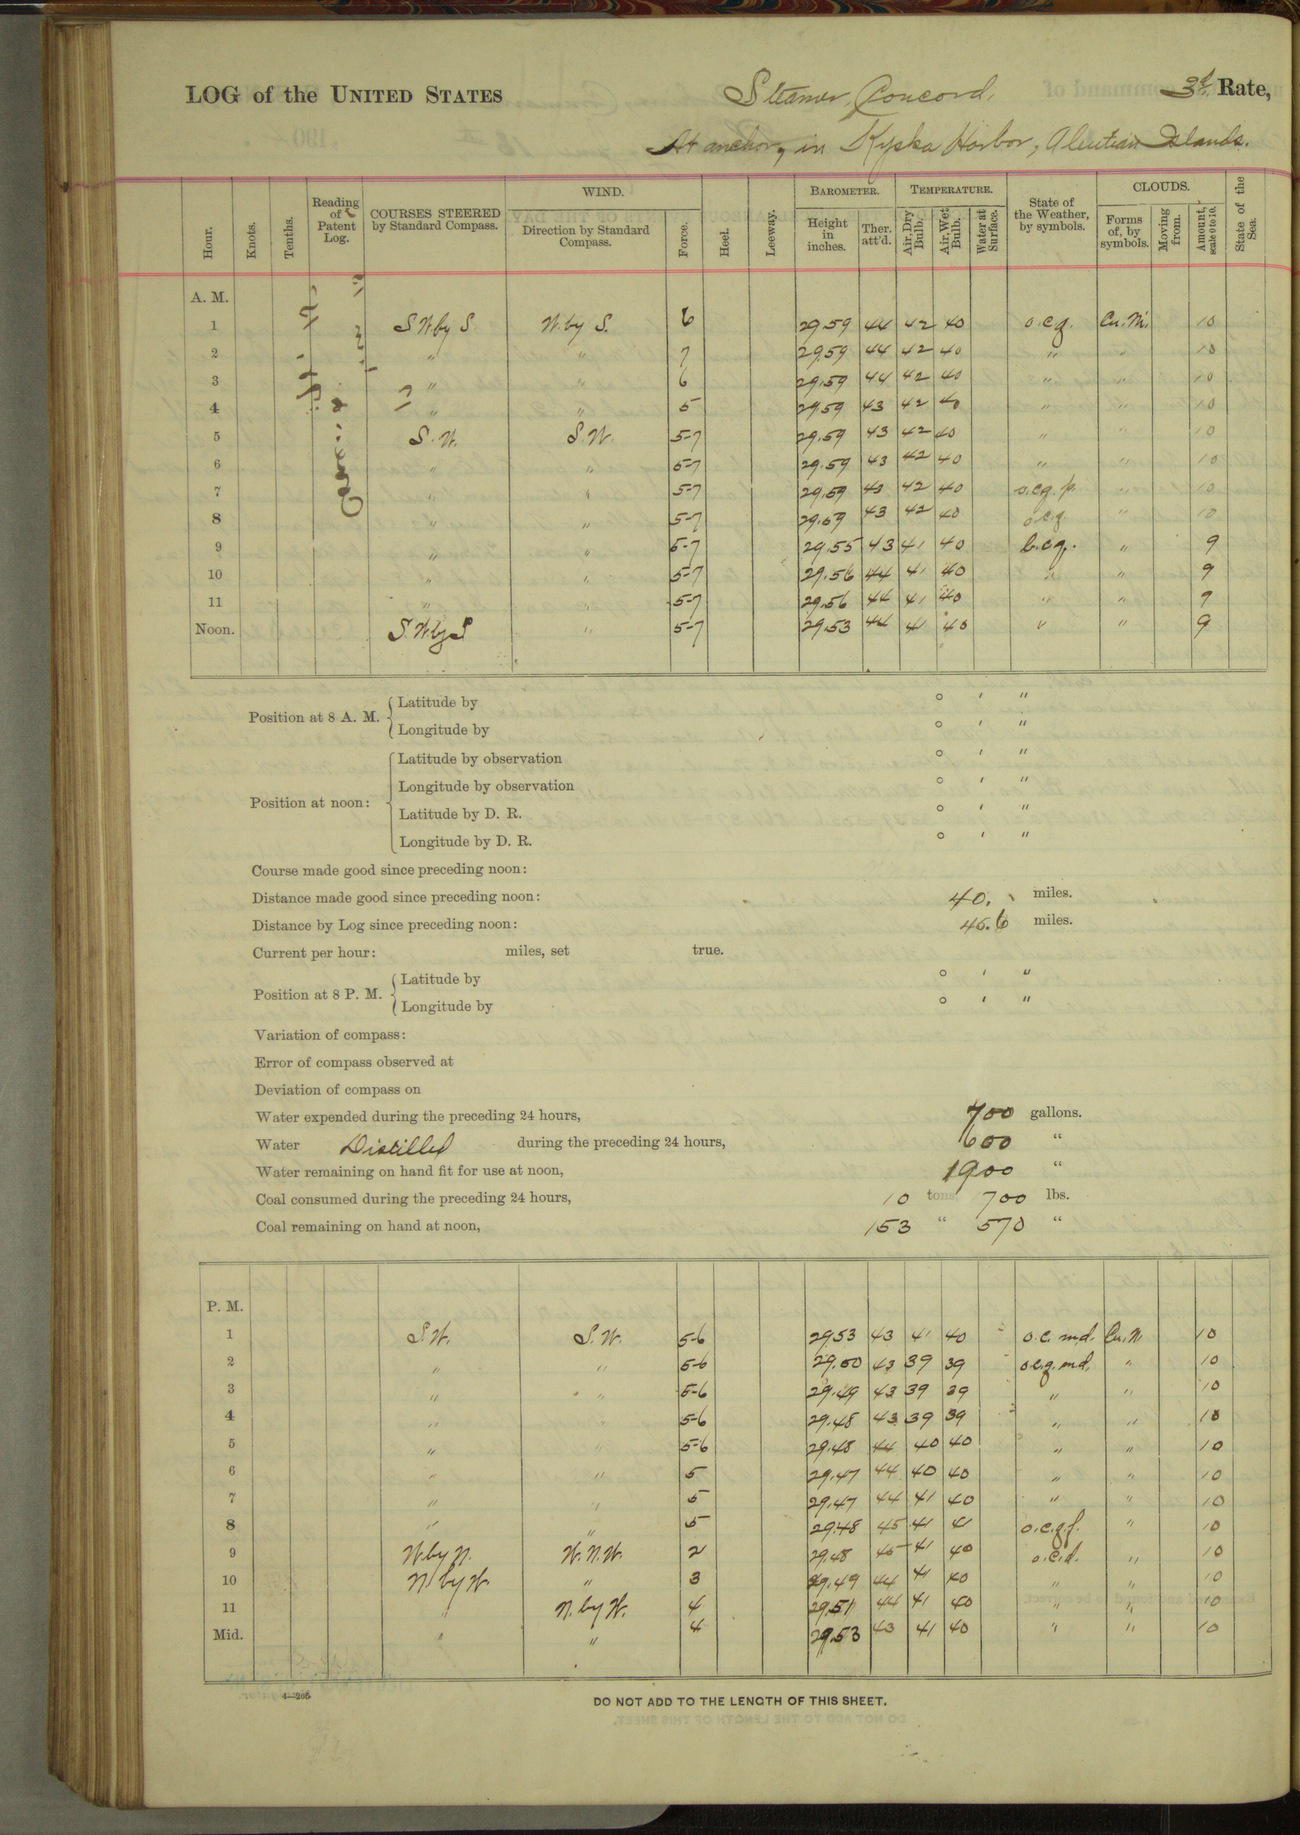 LOG of the UNITED STATES Steamer, Concord, 3d Rate,
At anchor, in Kyska Harbor, Aleutian Islands.
Hour. Knots. Tenths. Reading of Patent Log. COURSES STEERED by Standard Compass. WIND. Direction by Standard Compass. Force. Heel. Leeway. BAROMETER. Height in inches. Ther. att'd. TEMPERATURE. Air, Dry Bulb. Air, Wet Bulb. Water at Surface. State of the Weather, by symbols. CLOUDS. Forms of, by symbols. Moving from. Amount, scale 0 to 10. State of the Sea.
A. M.
1 S.W. by S. W. by S. 6 29.59 44 42 40 o.c.q. Cu.N. 10
2 " " 7 29.59 44 42 40 " " 10
3 " " 6 29.59 44 42 40 " " 10
4 " " 5 29.59 43 42 40 " " 10
5 S.W. S.W. 5-7 29.59 43 42 40 " " 10
6 " " 5-7 29.59 43 42 40 " " 10
7 " " 5-7 29.59 43 42 40 o.c.q.p. " 10
8 " " 5-7 29.59 43 42 40 o.c.q. " 10
9 " " 5-7 29.55 43 41 40 b.c.q. " 9
10 " " 5-7 29.56 44 41 40 " " 9
11 " " 5-7 29.56 44 41 40 " " 9
Noon. S.W. by S " 5-7 29.53 44 41 40 " " 9
Position at 8 A. M. Latitude by ° ' "
Longitude by ° ' "
Position at noon: Latitude by observation ° ' "
Longitude by observation ° ' "
Latitude by D. R. ° ' "
Longitude by D. R. ° ' "
Course made good since preceding noon:
Distance made good since preceding noon: 40. miles.
Distance by Log since preceding noon: 45.6 miles.
Current per hour: miles, set true.
Position at 8 P. M. Latitude by ° ' "
Longitude by ° ' "
Variation of compass:
Error of compass observed at
Deviation of compass on
Water expended during the preceding 24 hours, 700 gallons.
Water Distilled during the preceding 24 hours, 600 "
Water remaining on hand fit for use at noon, 1900 "
Coal consumed during the preceding 24 hours, 10 tons 700 lbs.
Coal remaining on hand at noon, 153 " 570 "
P. M.
1 S.W. S.W. 5-6 29.53 43 41 40 o.c.m.d. Cu.N. 10
2 " " 5-6 29.50 43 39 39 o.c.q.m.d. " 10
3 " " 5-6 29.49 43 39 39 " " 10
4 " " 5-6 29.48 43 39 39 " " 10
5 " " 5-6 29.48 44 40 40 " " 10
6 " " 5 29.47 44 40 40 " " 10
7 " " 5 29.47 44 41 40 " " 10
8 " " 5 29.48 45 41 41 o.c.g.f. " 10
9 W. by N. W.N.W. 2 29.48 45 41 40 o.c.d. " 10
10 N. by W. " 3 29.49 44 41 40 " " 10
11 " N. by W. 4 29.51 44 41 40 " " 10
Mid. " " 4 29.53 43 41 40 " " 10
4—205
DO NOT ADD TO THE LENGTH OF THIS SHEET.